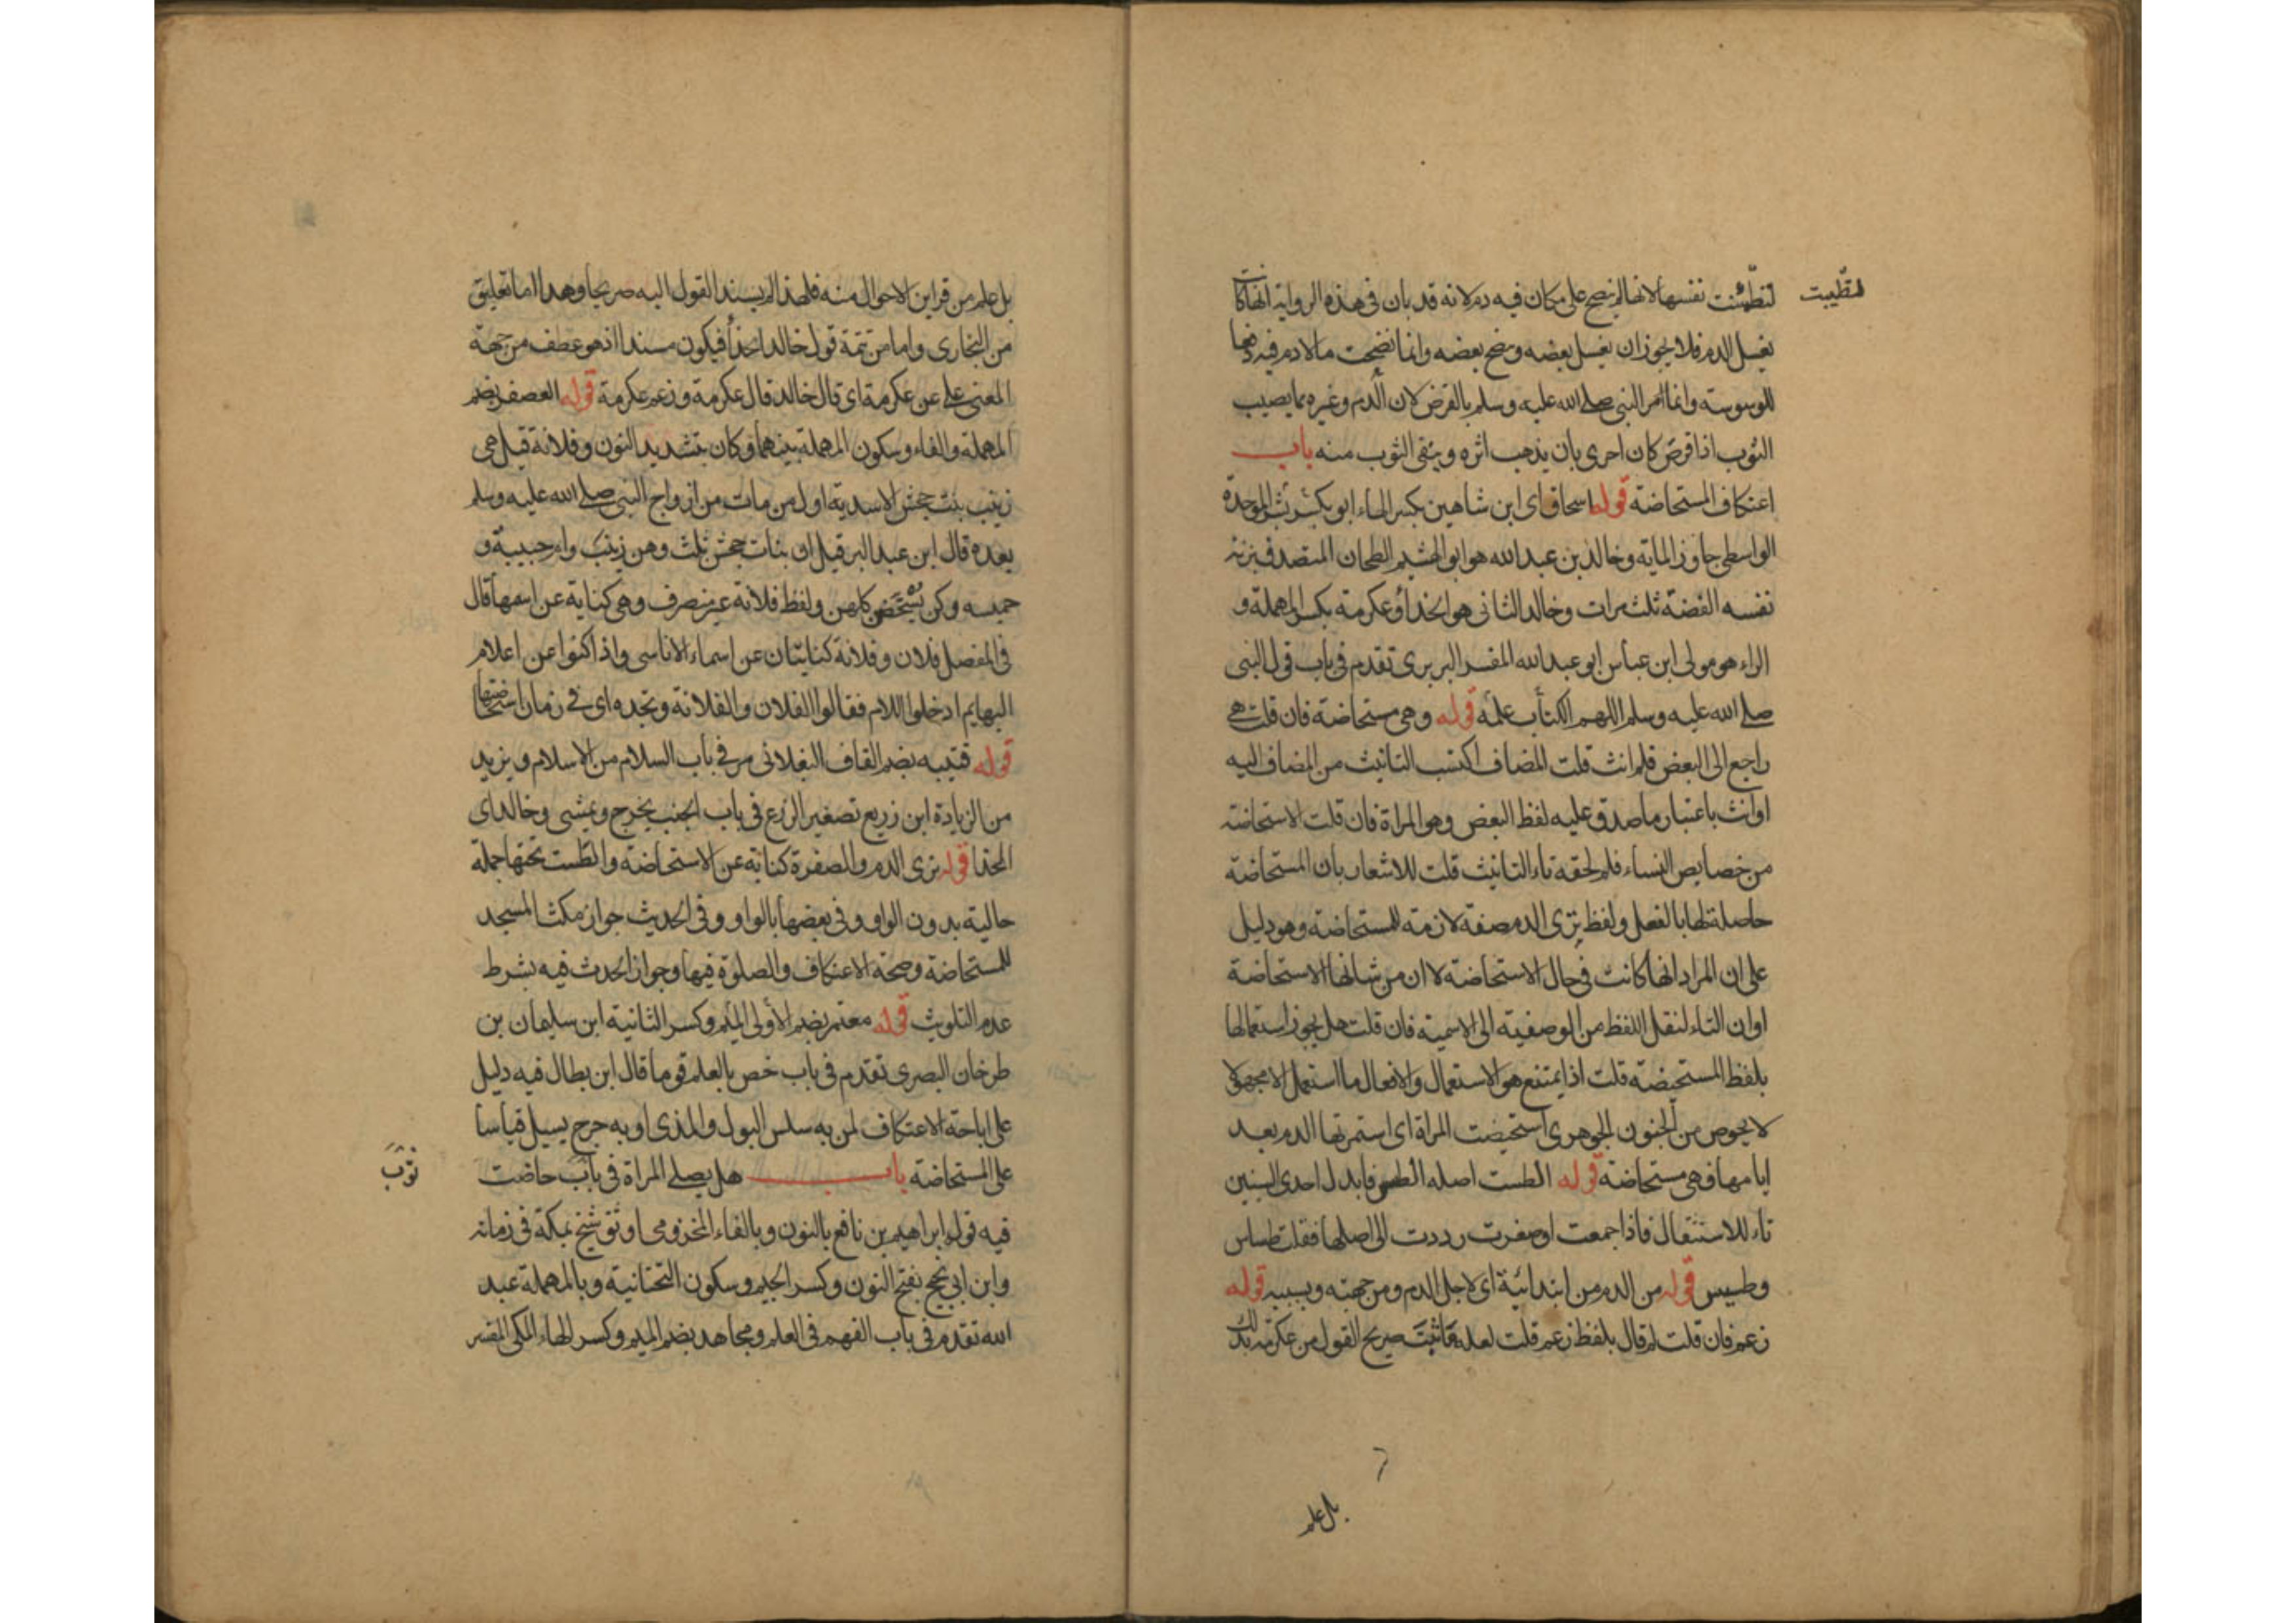 لتطيبت
لتطمئنت نفسها لانها لم ينضح على مكان فيه دم لانه قد بان في هذه الرواية انها كانت
يغسل الدم فلا يجوز ان يغسل بعضه وينضح بعضه وانما نضحت ما لا دم فيه دفعا
للوسوسة وانما امر النبي صلى الله عليه وسلم بالقرض لان الدم وغيره مما يصيب
الثوب اذا قرض كان احرى بان يذهب اثره وينقى الثوب منه باب
اعتكاف المستحاضة قوله اسحاق اى ابن شاهين بكسر الهاء ابو بشر الموحدة
الواسطي جاوز الماية وخالد بن عبد الله هو ابو الهشيم الطحان المتصدق بزنة
نفسه الفضة ثلث مرات وخالد الثاني هو الحذاء وعكرمة بكسر المهملة و
الراء هو مولى ابن عباس ابو عبد الله المفسر البربرى تقدم في باب قول النبي
صلى الله عليه وسلم اللهم الكتاب علمه قوله وهي مستحاضة فان قلت هي
راجع الى البعض فلم انث قلت المضاف اكتسب التانيث من المضاف اليه
او انث باعتبار ما صدق عليه لفظ البعض وهو المراة فان قلت الاستحاضة
من خصايص النساء فلم لحقه تاء التانيث قلت للاشعار بان المستحاضة
حاصلة لها بالفعل ولفظ ترى الدم صفة لازمة للمستحاضة وهو دليل
على ان المراد انها كانت في حال الاستحاضة لا ان من شانها الاستحاضة
او ان التاء لنقل اللفظ من الوصفية الى الاسمية فان قلت هل يجوز استعمالها
بلفظ المستحيضة قلت اذا يمتنع هو الاستعمال والافعال ما استعمل الا مجهولا
لا يحوص من الجنون الجوهرى استحيضت المراة اى استمر بها الدم بعد
ايامها فهي مستحاضة قوله الطست اصله الطس فابدل احدى السينين
تاء للاستثقال فاذا جمعت او صغرت رددت الى اصلها فقلت طساس
وطسيس قوله من الدم من ابتدائية اى لاجل الدم ومن جهته وبسببه قوله
زعم فان قلت لم قال بلفظ زعم قلت لعله ما ثبت صريح القول من عكرمة بذلك
بل علم
بل علم من قراين الاحوال منه فلهذا لم يسند القول اليه صريحا وهذا اما تعليق
من البخارى واما من تتمة قول خالد الحذاء فيكون مسندا اذ هو عطف من جهة
المعنى على عن عكرمة اى قال خالد قال عكرمة وزعم عكرمة قوله العصفر بضم
المهملة والفاء وسكون المهملة بينهما وكان بتشديد النون وفلانة قيل هي
زينب بنت جحش الاسدية اول من مات من ازواج النبي صلى الله عليه وسلم
بعده قال ابن عبد البر قيل ان بنات جحش ثلث وهن زينب وام حبيبة و
حمنه وكن يستحضن كلهن ولفظ فلانة غير منصرف وهي كناية عن اسمها قال
في المفصل فلان وفلانة كنايتان عن اسماء الاناسى واذا كنوا عن اعلام
البهايم ادخلوا اللام فقالوا الفلان والفلانة وتجده اى في زمان استحاضتها
قوله قتيبه بضم القاف البغلانى مر في باب السلام من الاسلام ويزيد
من الزيادة ابن زريع تصغير الزرع في باب الجنب يخرج ويمشى وخالد اى
الحذا قوله ترى الدم والصفرة كناية عن الاستحاضة والطست تحتها جملة
حالية بدون الواو وفي بعضها بالواو وفي الحديث جواز مكث المسجد
للمستحاضة وصحة الاعتكاف والصلوة فيها وجواز الحدث فيه بشرط
عدم التلويث قوله معتمر بضم الأولى الميم وكسر الثانية ابن سليمان بن
طرخان البصرى تقدم في باب خص بالعلم قوما قال ابن بطال فيه دليل
على اباحة الاعتكاف لمن به سلس البول والمذى او به جرح يسيل قياسا
على المستحاضة باب هل يصلى المراة في باب حاضت
ثوب
فيه قوله ابراهيم بن نافع بالنون وبالفاء المخزومى اوثق شيخ بمكة في زمانه
وابن ابي نجيح بفتح النون وكسر الجيم وسكون التحتانية وبالمهملة عبد
الله تقدم في باب الفهم في العلم ومجاهد بضم الميم وكسر الهاء المكى المفسر